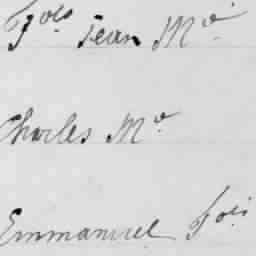 Fois Jean Me
Charles Me
Emmanuel Fois